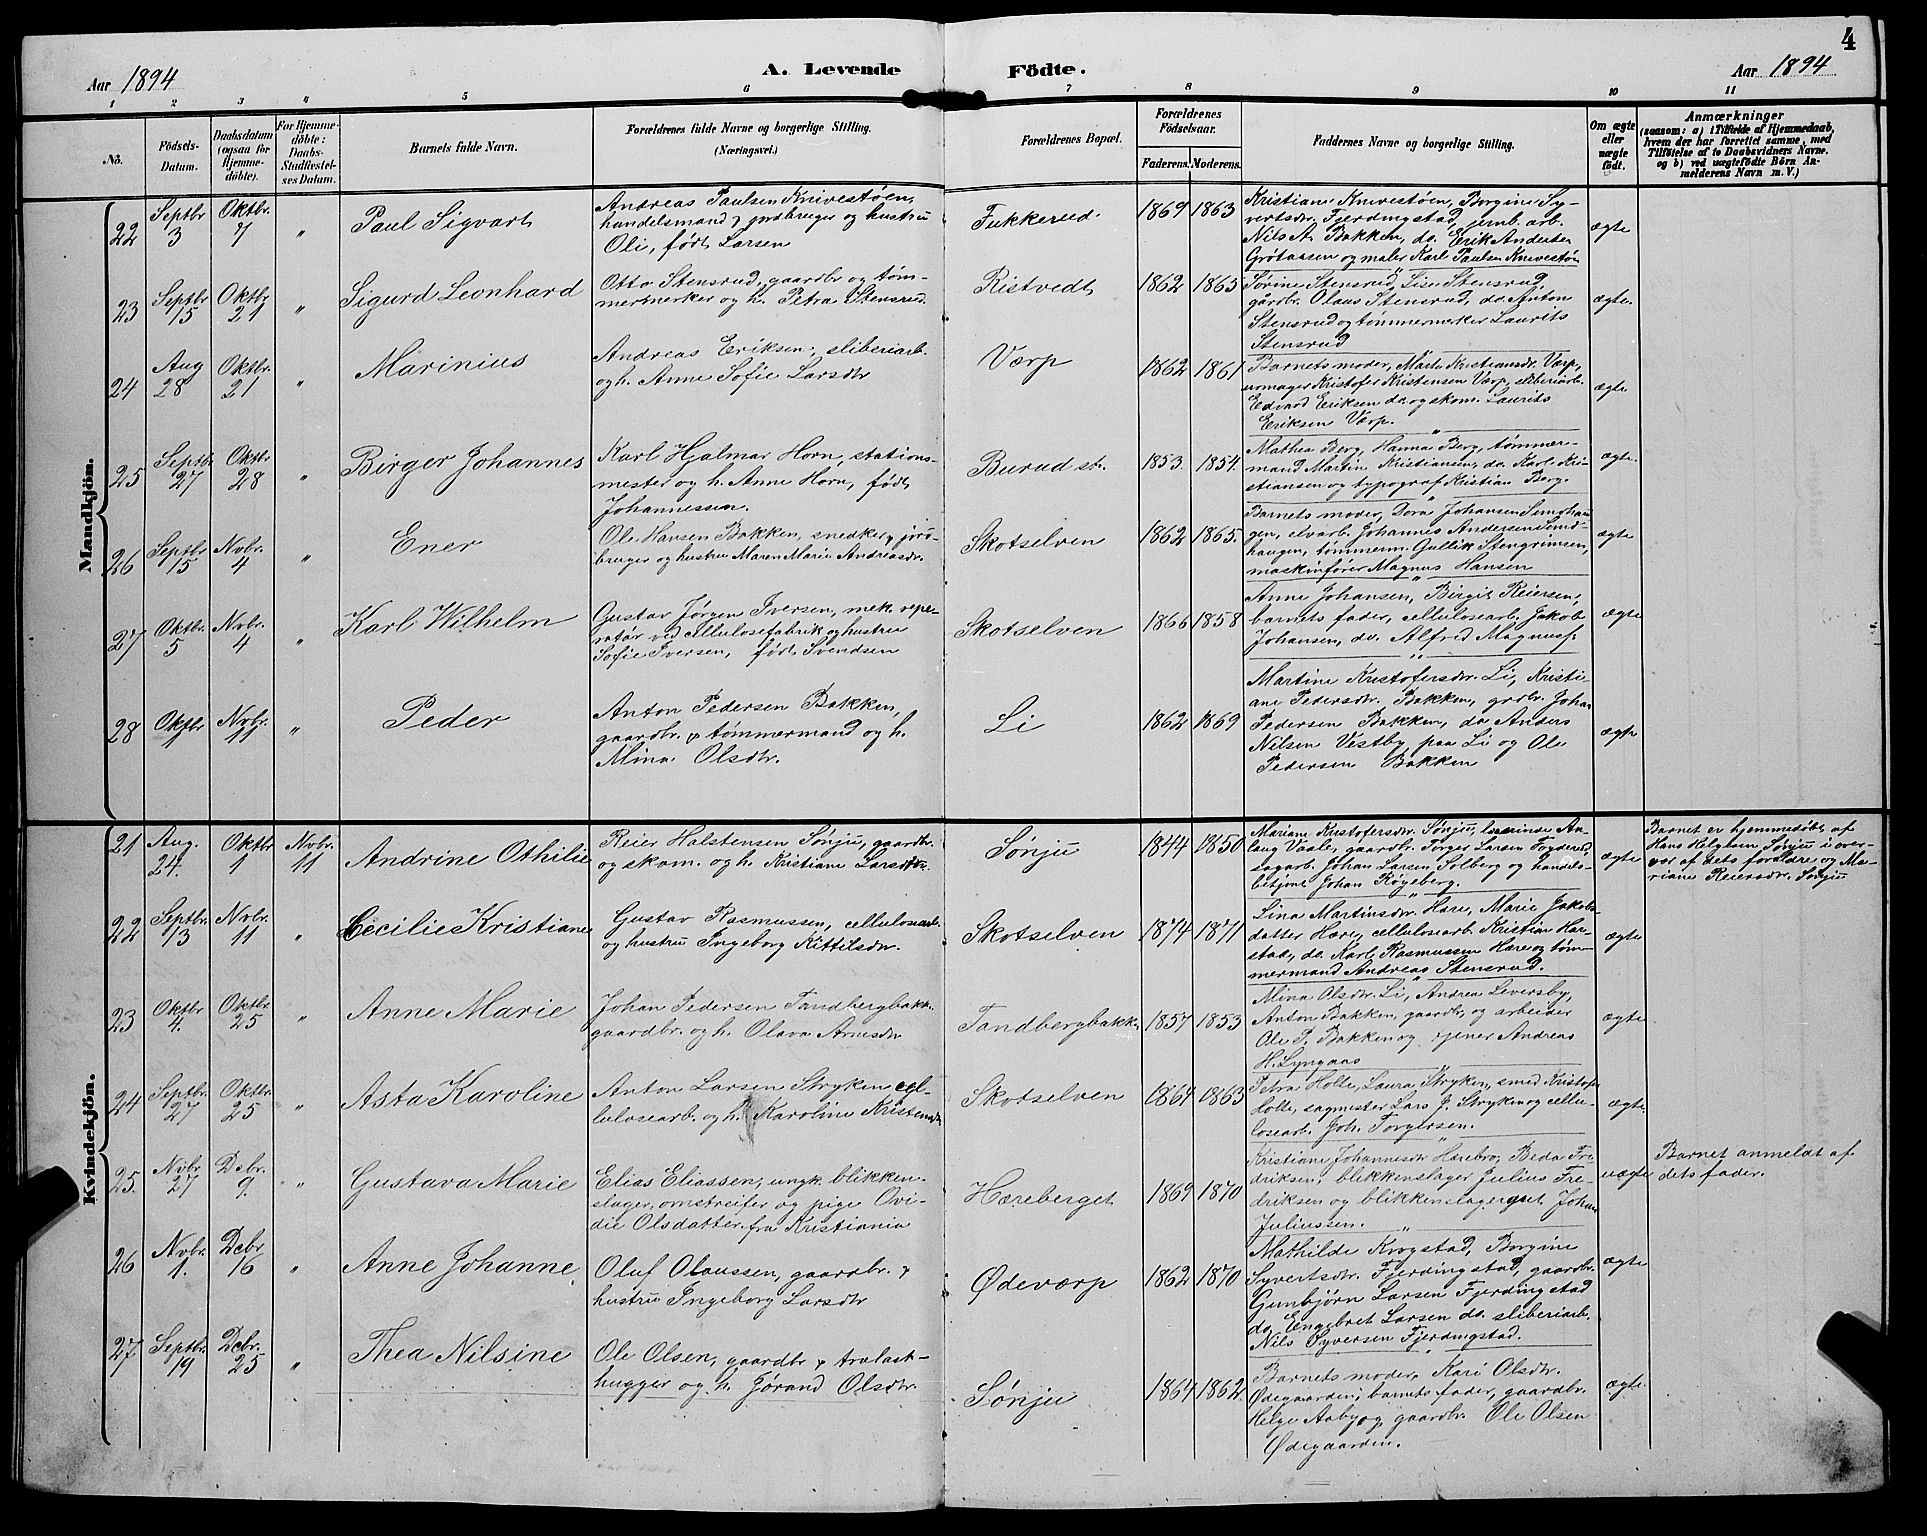 4
Aar 1894
A. Levende Födte.
Aar 1894
1 2 3 4 5 6 7 8 9 10 11
No.
Födsels-
Datum.
Daabsdatum
(ogsaa for
Hjemme-
döbte).
For Hjemme-
döbte:
Daabs-
Stadfæstel-
ses Datum.
Barnets fulde Navn.
Forældrenes fulde Navne og borgerlige Stilling.
(Næringsvei.)
Forældrenes Bopæl.
Forældrenes
Födselsaar.
Faderens. Moderens.
Faddernes Navne og borgerlige Stilling.
Om ægte
eller
uægte
födt.
Anmærkninger
(saasom: a) i Tilfælde af Hjemmedaab,
hvem der har forrettet samme, med
Tilföielse af to Daabsvidners Navne,
og b) ved uægtefödte Börn An-
melderens Navn m. V.)
Mandkjön.
22
Septbr. 3
Oktbr. 7
"
Paul Sigvart
Andreas Paulsen Knivestøen,
handelsmand & jordbruger og hustru
Oli, født Larsen
Fukkerud.
1869 1863
Kristiane Knivestøen, Borgine Sy-
vertsdr. Fjerdingstad, jernb. arb.
Nils A. Bakken, do. Erik Andersen
Grötaasen og maler Karl Paulsen Knivestøen
ægte
23
Septbr. 15
Oktbr. 21
"
Sigurd Leonhard
Otto Stensrud, gaardbr. og tøm-
mermerker og h. Petra Stensrud.
Ristvedt
1862 1865
Sørine Stensrud, Lise Stensrud
gårdbr. Olaus Stensrud, do. Anton
Stensrud og tømmermerker Laurits
Stensrud
ægte.
24
Aug 28
Oktbr. 21
"
Marinius
Andreas Eriksen, sliberiarb.
og h. Anne Sofie Larsdtr
Værp
1862 1861
Barnets moder, Marte Kristiansdr. Værp,
urmager Kristofer Kristensen Værp, sliberiarb.
Edvard Eriksen do. og skom. Laurits
Eriksen Værp.
ægte
25
Septbr. 27
Oktbr. 28
"
Birger Johannes
Karl Hjalmar Horn, stations-
mester og h. Anne Horn, født
Johannessen.
Burud st.
1853. 1854.
Mathea Berg, Hanna Berg, tømmer-
mand Martin Kristiansen, do. Karl Kri-
stiansen og typograf Kristian Berg.
ægte.
26
Septbr. 15
Novbr. 4
"
Ener
Ole Hansen Bakken, snedker & jord-
bruger og hustru Maren Marie Andreasdr.
Skotselven
1862 1865.
Barnets moder, Dora Johansen
gen, elvarb. Johannes Andersen
haugen, tømmerm. Gullik Stengrimsen,
maskinfører Magnus Hansen
ægte
27
Oktbr. 5
Novbr. 4
"
Karl Wilhelm
Gustav Jørgen Iversen, mek. repe-
ratør ved cellulosefabrik og hustru
Sofie Iversen, født Svendsen
Skotselven
1866 1858
Anne Johansen, Birgit Reiersen,
barnets fader, cellulosearb. Jakob
Johansen, do. Alfred Magnus
ægte
28
Oktbr 1
Novbr. 11
"
Peder
Anton Pedersen Bakken,
gaardbr. & tømmermand og h.
Mina Olsdtr.
Li
1862 1869
Martine Kristofersdr. Li, Kristi-
ane Pedersdr. Bakken, grdbr. Johan
Pedersen Bakken, do Anders
Nilsen Vestby paa Li og Ole
Pedersen Bakken
ægte
Kvindekjön.
21
Aug. 24.
Oktbr 1
Novbr. 11
Andrine Othilie
Reier Halstensen Sønju, gaardbr.
og skom. og h. Kristiane Larsdtr.
Sønju
1844 1850
Mariane Kristofersdr. Sønju, lærerinde As-
laug Vaale, gaardbr. Torger Larsen
sagarb. Johan Larsen Solberg og handels-
betjent Johan Røgeberg.
ægte
Barnet er hjemmedøbt af
Hans Helgesen Sønju i over-
vær af dets forældre og Ma-
riane Reiersdr. Sønju
22
Septbr. 13
Novbr. 11
"
Cecilie Kristiane
Gustav Rasmussen, cellulosearb.
og hustru Ingeborg Kittilsdr.
Skotselven
1874 1871
Lina Martinsdr. Hære, Marie Jakobs-
datter Hære, cellulosearb. Kristian Har-
stad, do. Karl Rasmussen Hære og tøm-
mermand Andreas Stensrud.
ægte
23
Oktbr 4.
Oktbr 25
"
Anne Marie
Johan Pedersen Tandbergbakk.
gaardbr. og h. Olava Arnesdr
Tandbergbakk.
1857 1853
Mina Olsdr. Li, Andrea Leversby,
Anton Bakken, gaardbr, og arbeider
Ole P. Bakken og tjener Andreas
H. Lyngaas
ægte
24
Septbr. 27
Oktbr. 25
"
Asta Karoline
Anton Larsen Stryken, cel-
lulosearb. og h. Karoline Kristensdr
Skotselven
1864 1863
Petra Holte, Laura Stryken, smed Kristofer
Holte, sagmester Lars J. Stryken og cellu-
losearb. Joh. Torgersen.
ægte.
25.
Novbr 27
Dcbr. 9.
"
Gustava Marie
Elias Eliassen, ungk. blikken-
slager, omstreifer og pige Ovi-
die Olsdatter fra Kristiania
Hæreberget
1869 1870
Kristiane Johannesdr Hærebrg, Beda Fre-
driksen, blikkenslager Julius Fre-
driksen og blikkenslagergut Johan
Juliussen.
uægte
Barnet anmeldt af
dets fader.
26
Novbr. 1.
Dcbr 16
"
Anne Johanne
Oluf Olaussen, gaardbr. &
hustru Ingeborg Larsdtr
Ødeværp
1862 1870
Mathilde Krogstad, Borgine
Syvertsdtr. Fjerdingstad, gaardbr.
Gunbjørn Larsen Fjerdingstad
do, Engebret Larsen do. sliberiarb.
Nils Syversen Fjerdingstad.
ægte
27
Septbr. 19
Dcbr. 25
"
Thea Nilsine
Ole Olsen, gaardbr & trælast-
hugger og h. Jørand Olsdtr.
Sønju
1864 1862.
Barnets moder, Kari Olsdtr.
Ødegaarden, barnets fader, gaardbr.
Helge Aaby og gaardbr. Ole Olsen
Ødegaarden.
ægte